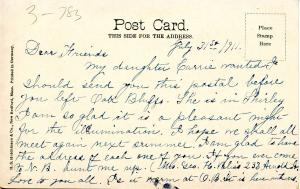 3-783
Post Card.
THIS SIDE FOR THE ADDRESS.
Place
Stamp
Here
July 31st 1911.
Dear Friends
My daughter Carrie wanted I
should send you this postal before
you left Oak Bluffs. She is in Shirley
I am so glad it is a pleasant night
for the illumination. I hope we shall all
meet again next summer. I am glad to have
the address of each one of you. If you ever come
to N.B. hunt me up. (Mrs. Geo. 232 St.
Love to you all. Is it warm at O.B. it is here